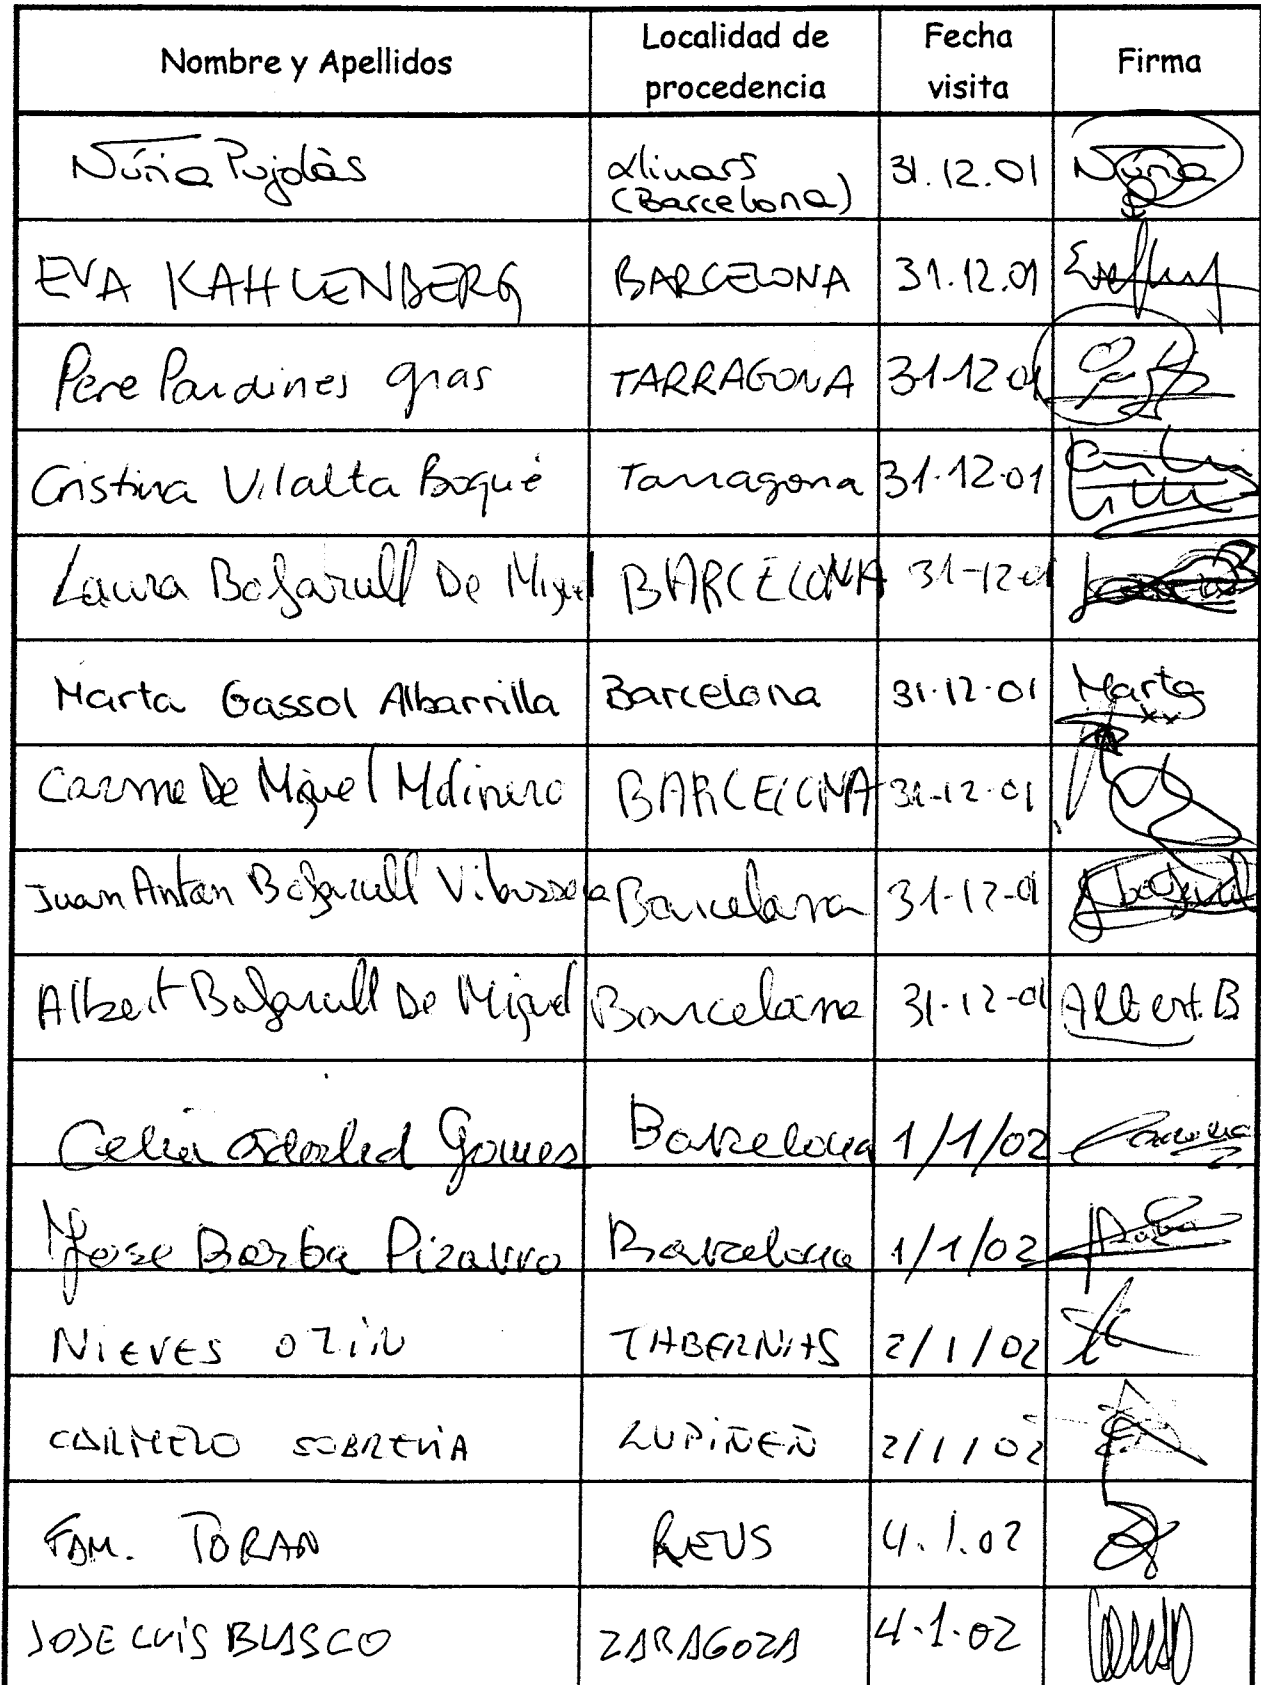 Nombre y Apellidos Localidad de procedencia Fecha visita Firma
Núria Pujolàs Llinars (Barcelona) 31.12.01 Núria
EVA KAHLENBERG BARCELONA 31.12.01
Pere Pardines gras TARRAGONA 31.12.01
Cristina Vilalta Boqué Tarragona 31.12.01
Laura Bofarull De Miguel BARCELONA 31-12-01
Marta Gassol Albarrilla Barcelona 31.12.01 Marta
Carme De Miguel Molinero BARCELONA 31-12-01
Juan Anton Bofarull Barcelona 31-12-01
Albert Bofarull De Miguel Barcelona 31-12-01 Albert.B
Celia Gomes Barcelona 1/1/02
Jose Barba Pizarro Barcelona 1/1/02
NIEVES OZIN TABERNAS 2/1/02
CARMELO LUPIÑEN 2/1/02
FAM. TORAN REUS 4.1.02
JOSE LUIS BLASCO ZARAGOZA 4.1.02